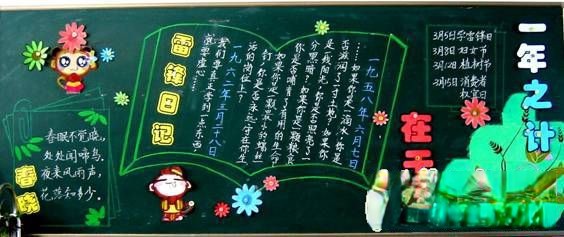 一年之计
在
3月5日学雷锋日
3月8日妇女节
3月12日植树节
3月15日消费者
权宜日
雷锋日记
一九五八年六月七日
……如果你是一滴水，你是
否滋润了一寸土地？如果你
是一线阳光，你是否照亮了一
分黑暗？如果你是一颗粮食，
你是否哺育了有用的生命？
如果你是一颗最小的螺丝
钉，你是否永远守在你生
活的岗位上？
一九六二年三月二十八日
我们要真正学到一点东西，
就要虚心……
春晓
春眠不觉晓，
处处闻啼鸟，
夜来风雨声，
花落知多少。